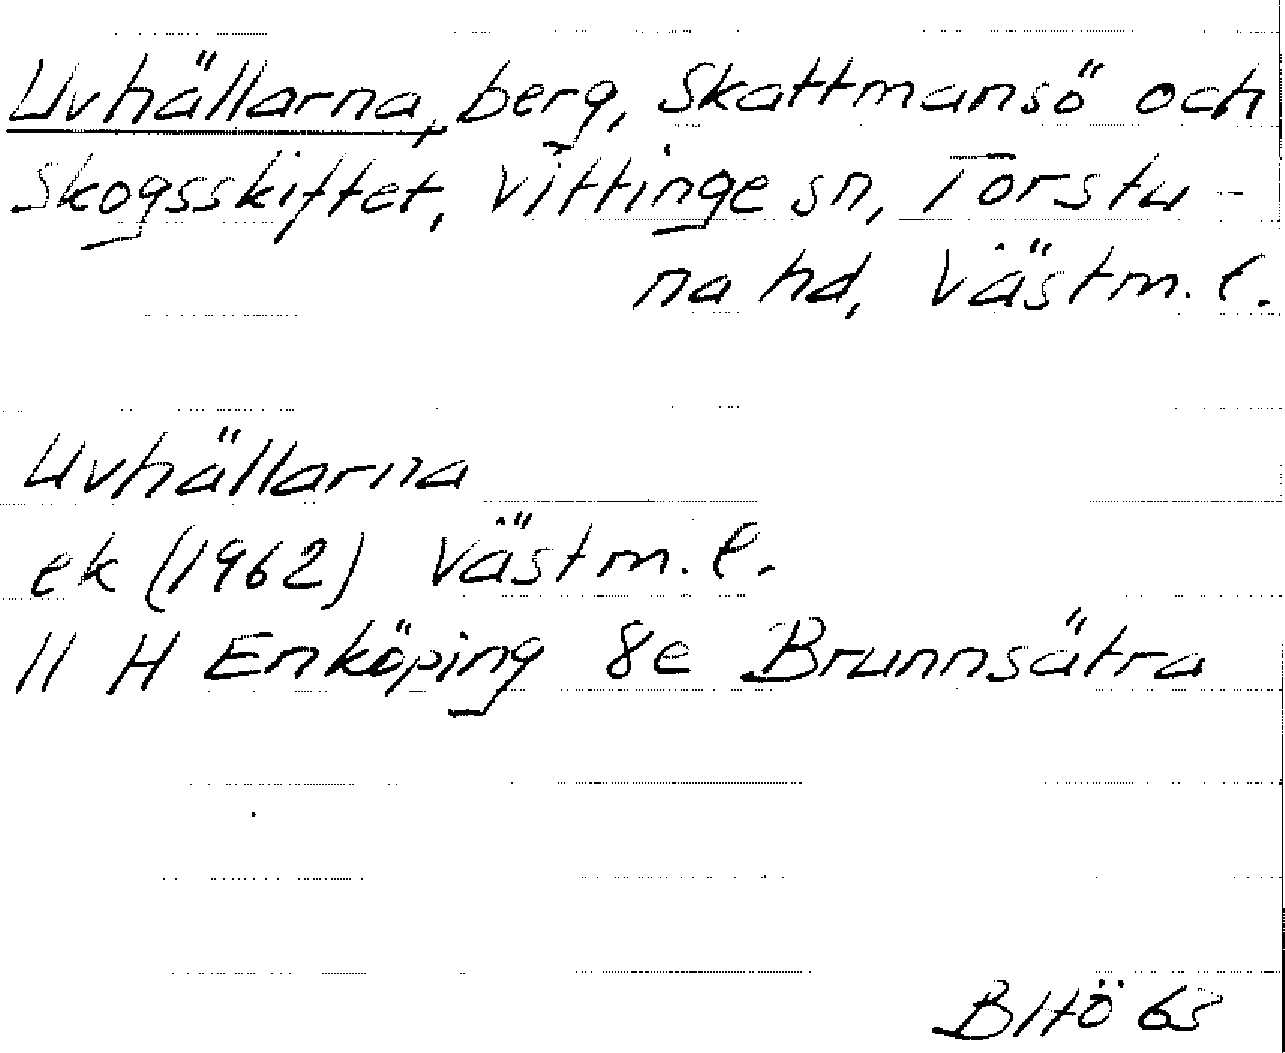 Uvhällarna, berg, Skattmansö och
Skogsskiftet, Vittinge sn, Torstu-
na hd, Västm. l.
Uvhällarna
ek (1962) Västm. l.
11 H Enköping 8e Brunnsätra
BHÖ 63